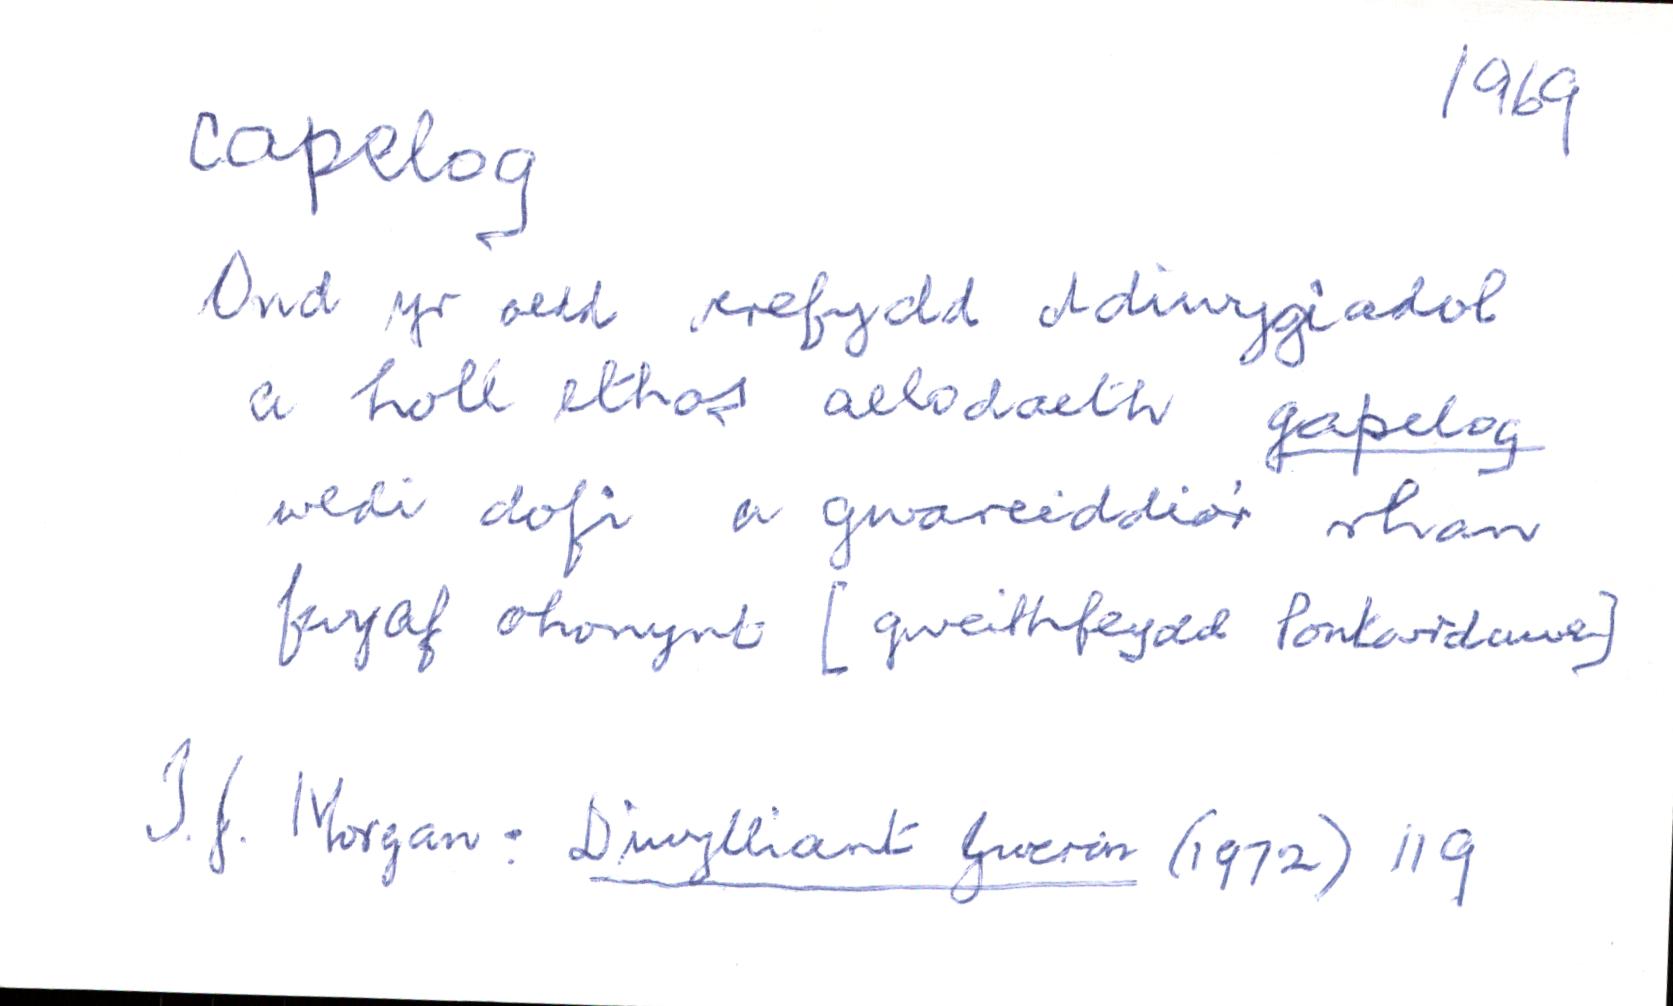 1969
capelog
Ond yr oedd crefydd ddiwygiadol
a holl ethos aelodaeth gapelog
wedi dofi a gwareiddio'r rhan
fwyaf ohonynt [gweithfeydd Pontardawe]
T.J. Morgan: Diwylliant Gwerin (1972) 119